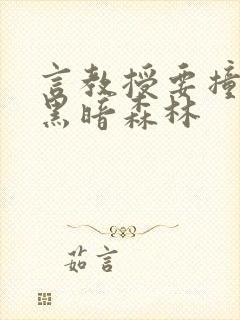 言教授要撞
黑暗森林
茹言